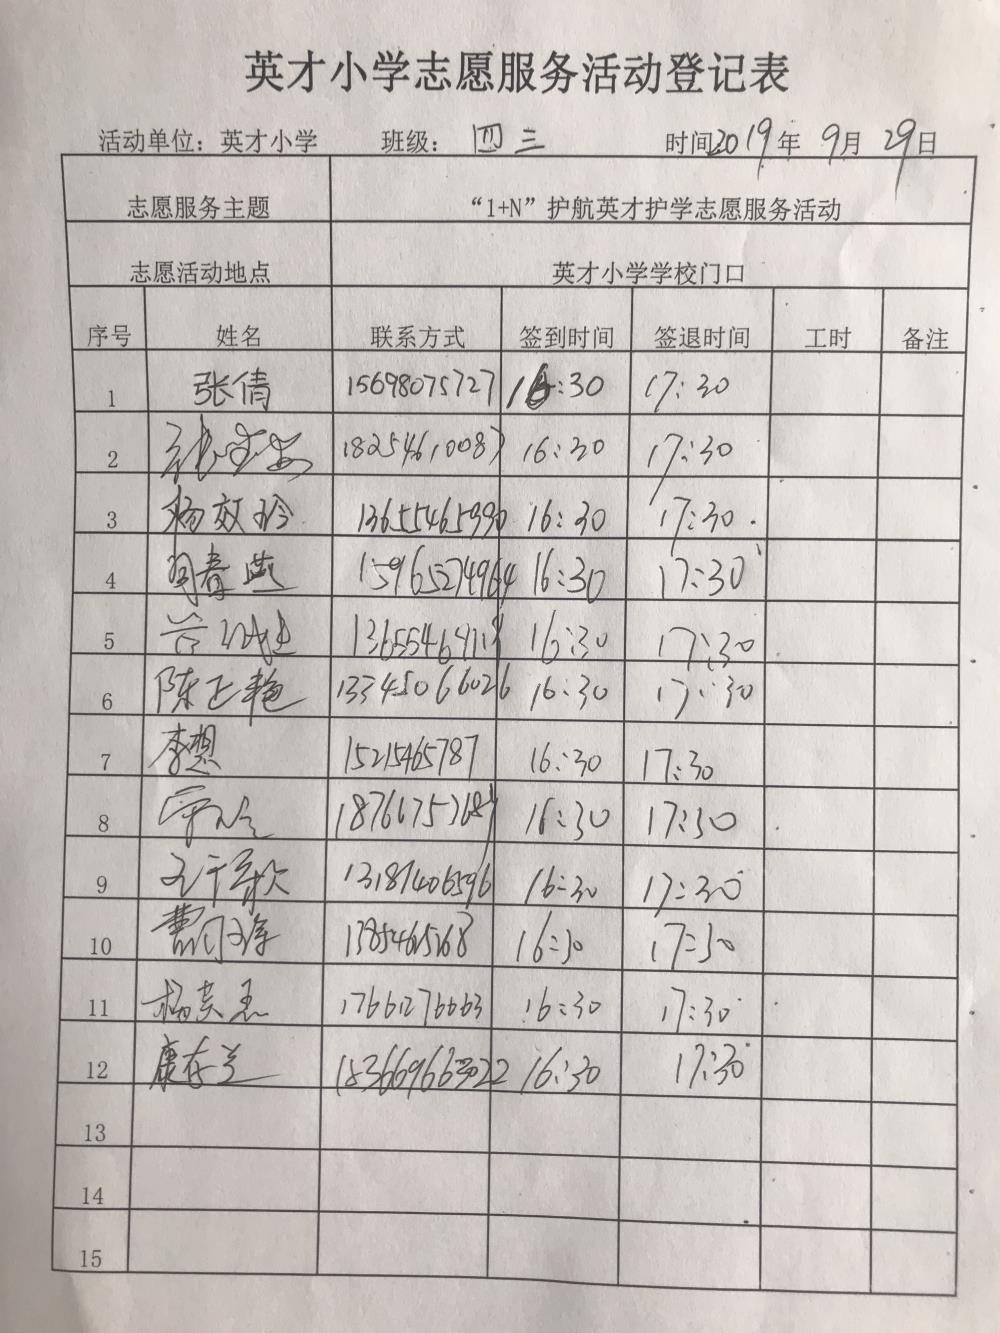 英才小学志愿服务活动登记表
活动单位：英才小学 班级：四三 时间2019年9月29日
志愿服务主题 “1+N”护航英才护学志愿服务活动
志愿活动地点 英才小学学校门口
序号 姓名 联系方式 签到时间 签退时间 工时 备注
1 张倩 15698075727 16:30 17:30
2 16:30 17:30
3 杨效玲 13655465990 16:30 17:30
4 春燕 15965274964 16:30 17:30
5 16:30 17:30
6 陈正艳 13345066026 16:30 17:30
7 李想 15215465787 16:30 17:30
8 16:30 17:30
9 王千敏 13187406596 16:30 17:30
10 曹 16:30 17:30
11 杨 17661276663 16:30 17:30
12 康存兰 16:30 17:30
13
14
15